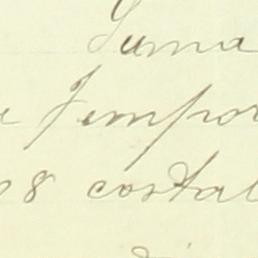 Suma
e Tempor
08 costal